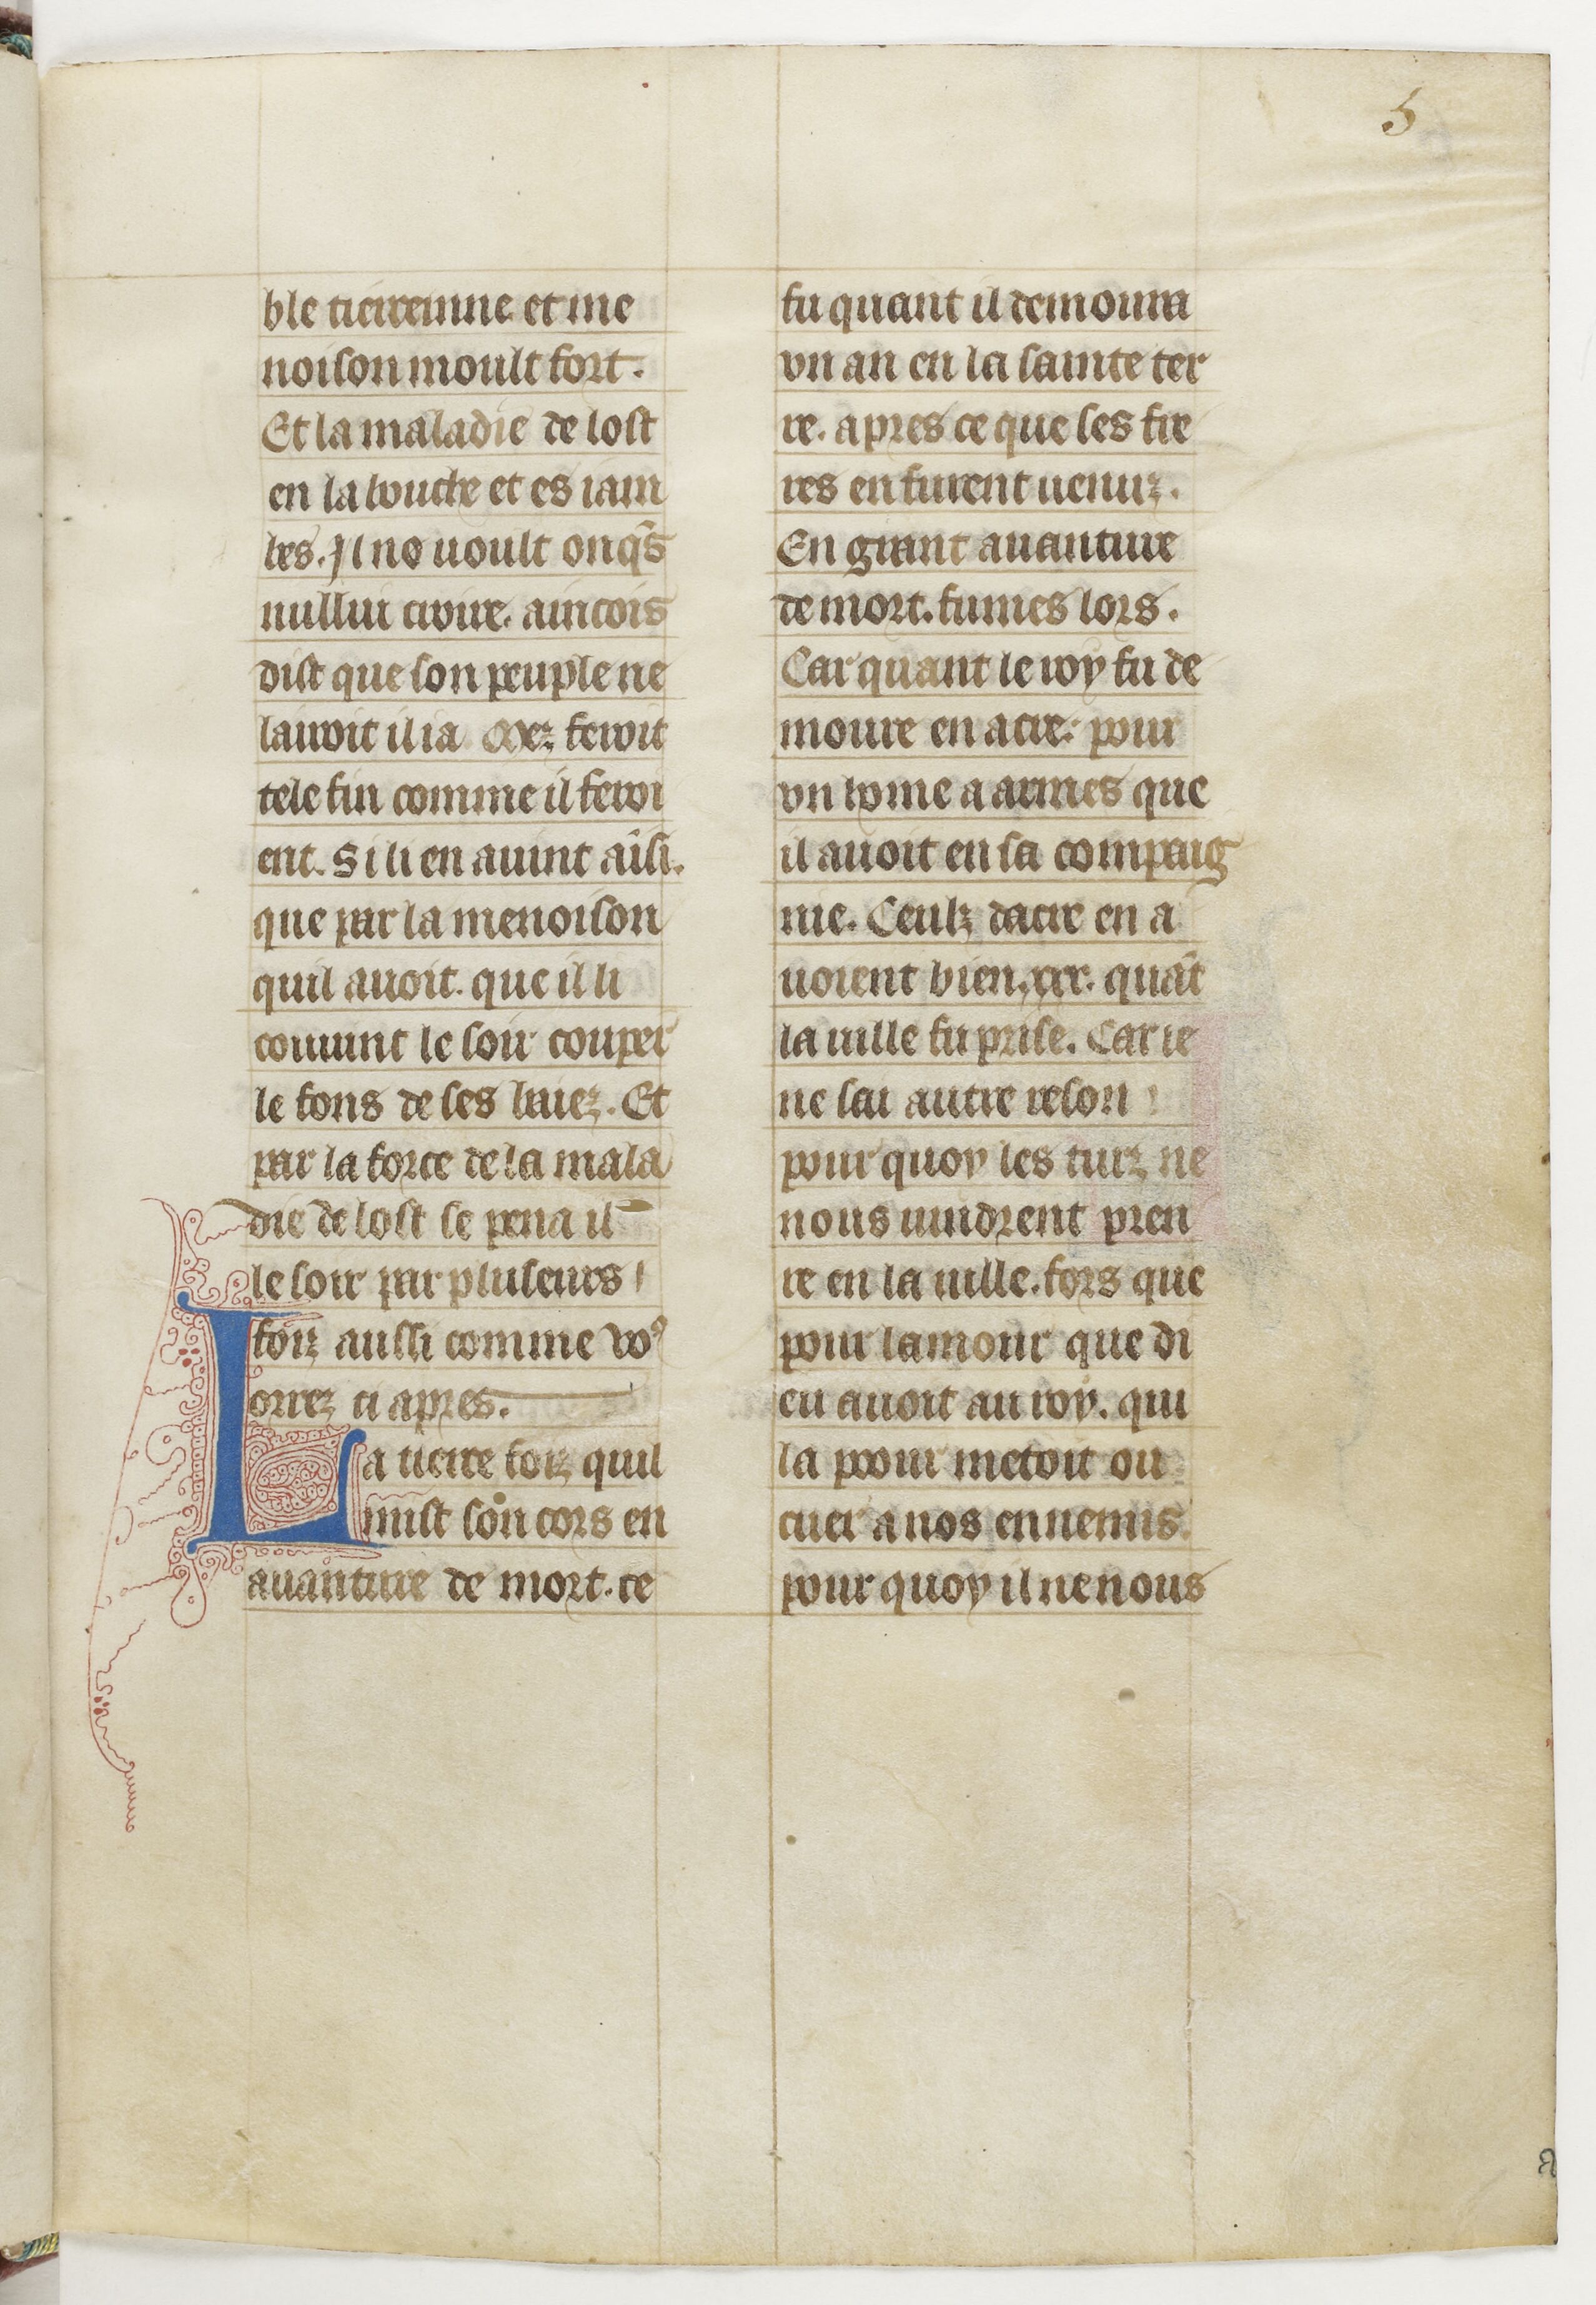 5
ble tierceinne et me
noison moult fort.
Et la maladie de lost
en la bouche et es iam
bes. Jl ne uoult onq̄s
nullui croire. aincois
dist que son peuple ne
lairoit il ia. Mez feroit
tele fin comme il feroi
ent. Si li en auint aīsi.
que par la menoison
quil auoit. que il li
couuint le soir couper
le fons de ses braiez. Et
par la force de la mala
die de lost se pena il
le soir par pluseurs
foiz aussi comme voꝰ
orrez ci apres.
La tierce foiz quil
mist son cors en
auanture de mort. ce
fu quant il demoura
vn an en la sainte ter
re. apres ce que ses fre
res en furent uenuz.
En grant auanture
de mort. fumes lors.
Car quant le roy fu de
moure en acre. pour
vn home a armes que
il auoit en sa compaig
nie. Ceulz dacre en a
uoient bien .xxx. quāt
la uille fu prise. Car ie
ne sai autre reson
pour quoy les turz ne
nous uindrent pren
re en la uille. fors que
pour lamour que di
eu auoit au roy. qui
la poour metoit ou
cuer a nos ennemis.
pour quoy il ne nous